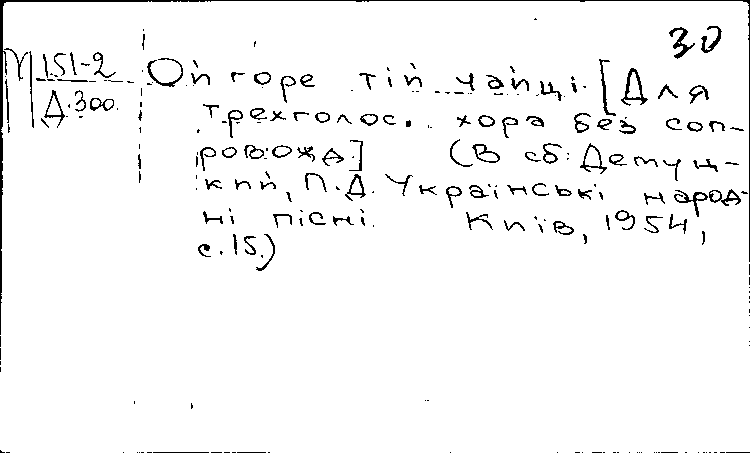 30
М 151-2
Д.300.
Ой горе тій чайці. [Для
трехголос. хора без соп-
ровожд.] (В сб: Демуц-
кий, П.Д. Українські народ-
ні пісні. Київ, 1954,
с.15.)